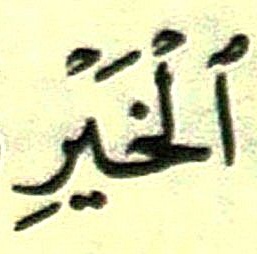 ٱلْخَيْرِ